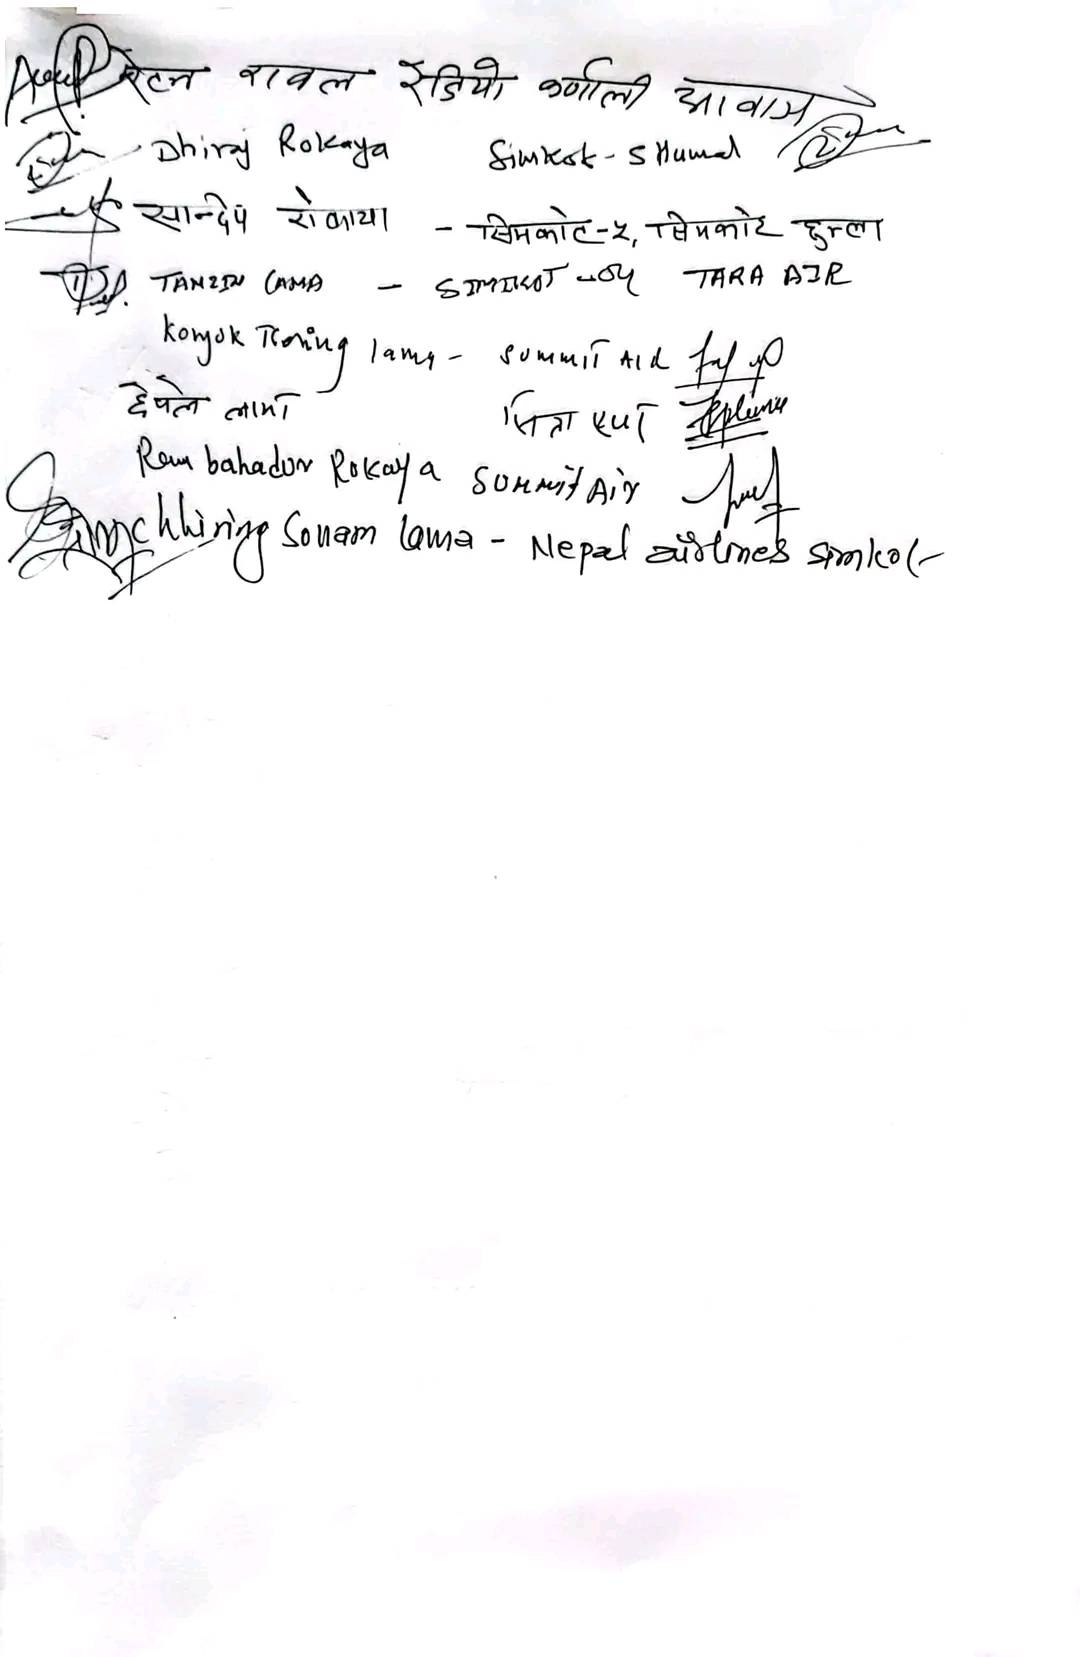 रावल रेडियो कर्णाली आवाज
Dhiraj Rokaya Simkot - 5 Humal
सान्देप रोकाया - सिमकोट-५, सिमकोट हुम्ला
TANZIN LAMA - SIMIKOT -04 TARA AIR
Konjok Tsering lama - SUMMIT AIR
छेपेल लामा सिता एयर
Ram bahadur Rokaya SUMMIT Air
chhiring Sonam lama - Nepal airlines simkot